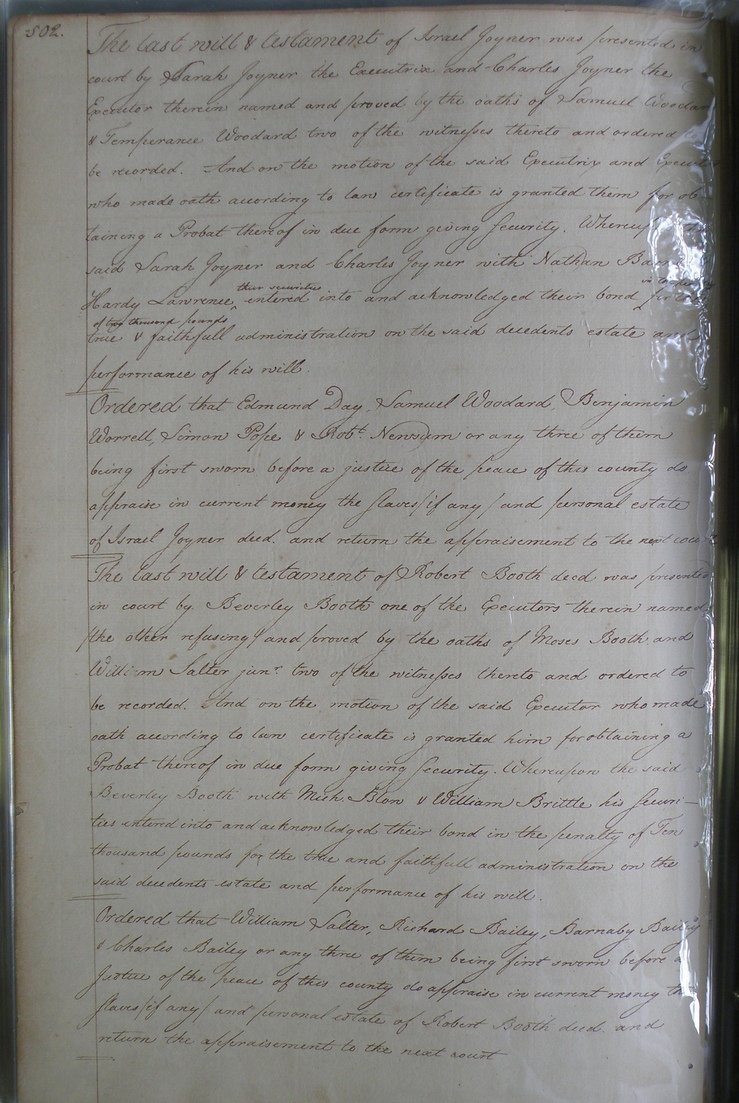 502.
The last will & testament of Israel Joyner was presented in
court by Sarah Joyner the Executrix and Charles Joyner the
Executor therein named and proved by the oaths of Samuel Woodard
& Temperance Woodard two of the witnesses thereto and ordered
be recorded. And on the motion of the said Executrix and
who made oath according to law certificate is granted them for ob
taining a Probat thereof in due form giving security. Whereupon
said Sarah Joyner and Charles Joyner with Nathan
their securities
Hardy Lawrence ‸ entered into and acknowledged their bond ‸ for the
of two thousand pounds
true & faithfull administration on the said decedents estate and
performance of his will.
Ordered that Edmund Day, Samuel Woodard, Benjamin
Worrell, Simon Pope & Robt. Newsum or any three of them
being first sworn before a justice of the peace of this county do
appraise in current money the slaves/if any/ and personal estate
of Israel Joyner deced. and return the appraisement to the next
The last will & testament of Robert Booth deced was presented
in court by Beverley Booth one of the Executors therein named
/the other refusing/ and proved by the oaths of Moses Booth and
William Salter junr. two of the witnesses thereto and ordered to
be recorded. And on the motion of the said Executor who made
oath according to law certificate is granted him for obtaining a
Probat thereof in due form giving security. Whereupon the said
Beverley Booth with Mich. Blow & William Brittle his securi-
ties entered into and acknowledged their bond in the penalty of Ten
thousand pounds for the true and faithfull administration on the
said decedents estate and performance of his will.
Ordered that William Salter, Richard Bailey, Barnaby Bailey
& Charles Bailey or any three of them being first sworn before a
Justice of the peace of this county do appraise in current money the
slaves/if any/ and personal estate of Robert Booth deced. and
return the appraisement to the next court